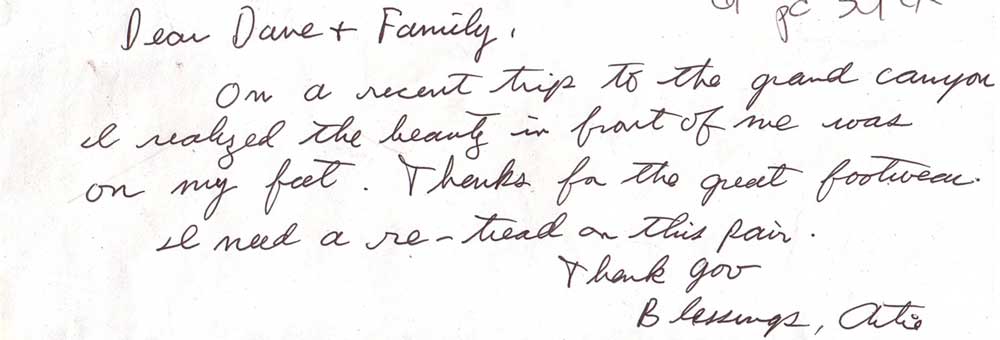 Dear Dave + Family,
On a recent trip to the grand canyon
I realized the beauty in front of me was
on my feet. Thanks for the great footwear.
I need a re-tread on this pair.
Thank you
Blessings, Artie